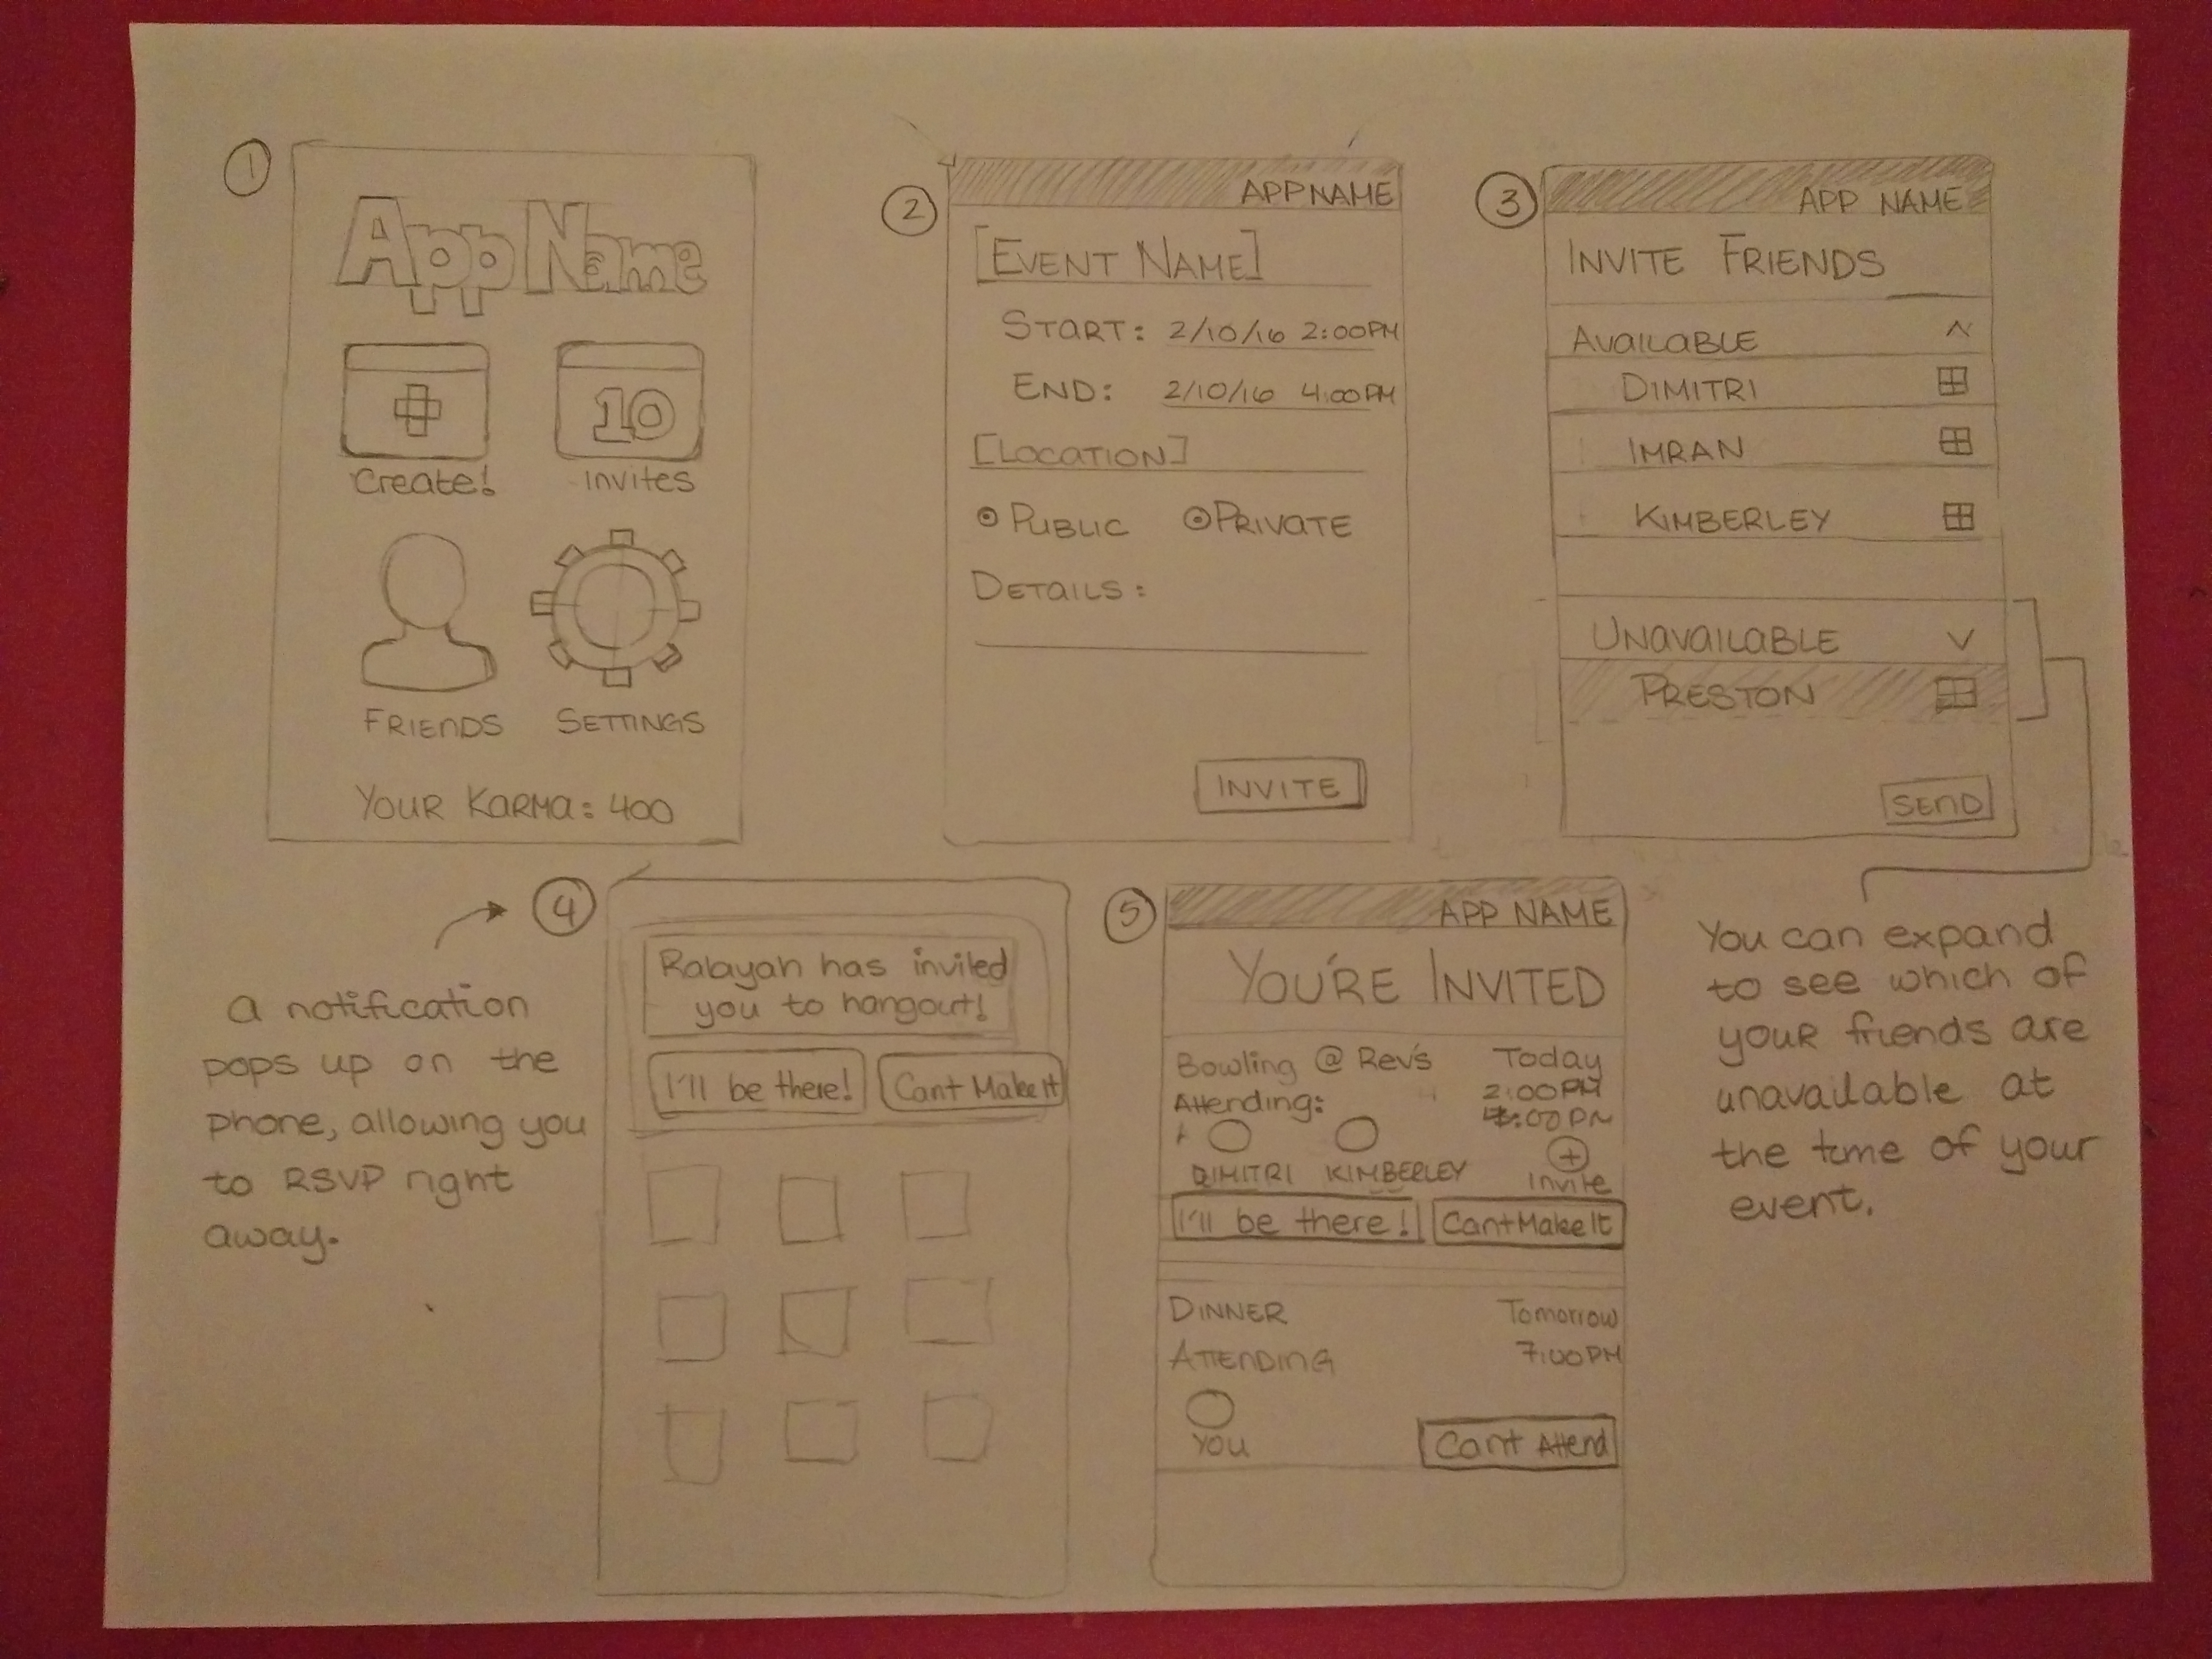 1
App Name
10
Create!
Invites
FRIENDS
SETTINGS
YOUR KARMA: 400
2
APP NAME
[EVENT NAME]
START: 2/10/16 2:00PM
END: 2/10/16 4:00PM
[LOCATION]
PUBLIC PRIVATE
DETAILS:
INVITE
3
APP NAME
INVITE FRIENDS
AVAILABLE
DIMITRI
IMRAN
KIMBERLEY
UNAVAILABLE
PRESTON
SEND
You can expand
to see which of
your friends are
unavailable at
the time of your
event.
A notification
pops up on the
phone, allowing you
to RSVP right
away.
4
Rabayah has invited
you to hangout!
I'll be there! Cant Make It
5
APP NAME
YOU'RE INVITED
Bowling @ Rev's Today
2:00PM
Attending: 4:00PM
DIMITRI KIMBERLEY Invite
I'll be there! Cant Make It
DINNER Tomorrow
ATTENDING 7:00PM
YOU
Cant Attend